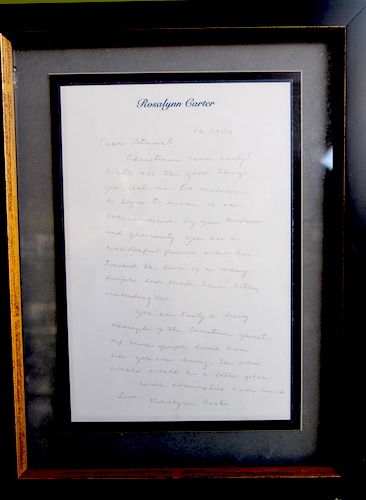 Rosalynn Carter
Dear Stuart,
Christmas came early!
With all the good things
you sent us, too numerous
to begin to name. I am
overwhelmed by your kindness
and generosity. You are a
wonderful person who has
touched the lives of so many
people and made them better,
including me.
You are truly a living
example of the Christmas spirit.
If more people lived
like you are living, the whole
world would be a better place.
With admiration and much
love,
Rosalynn Carter